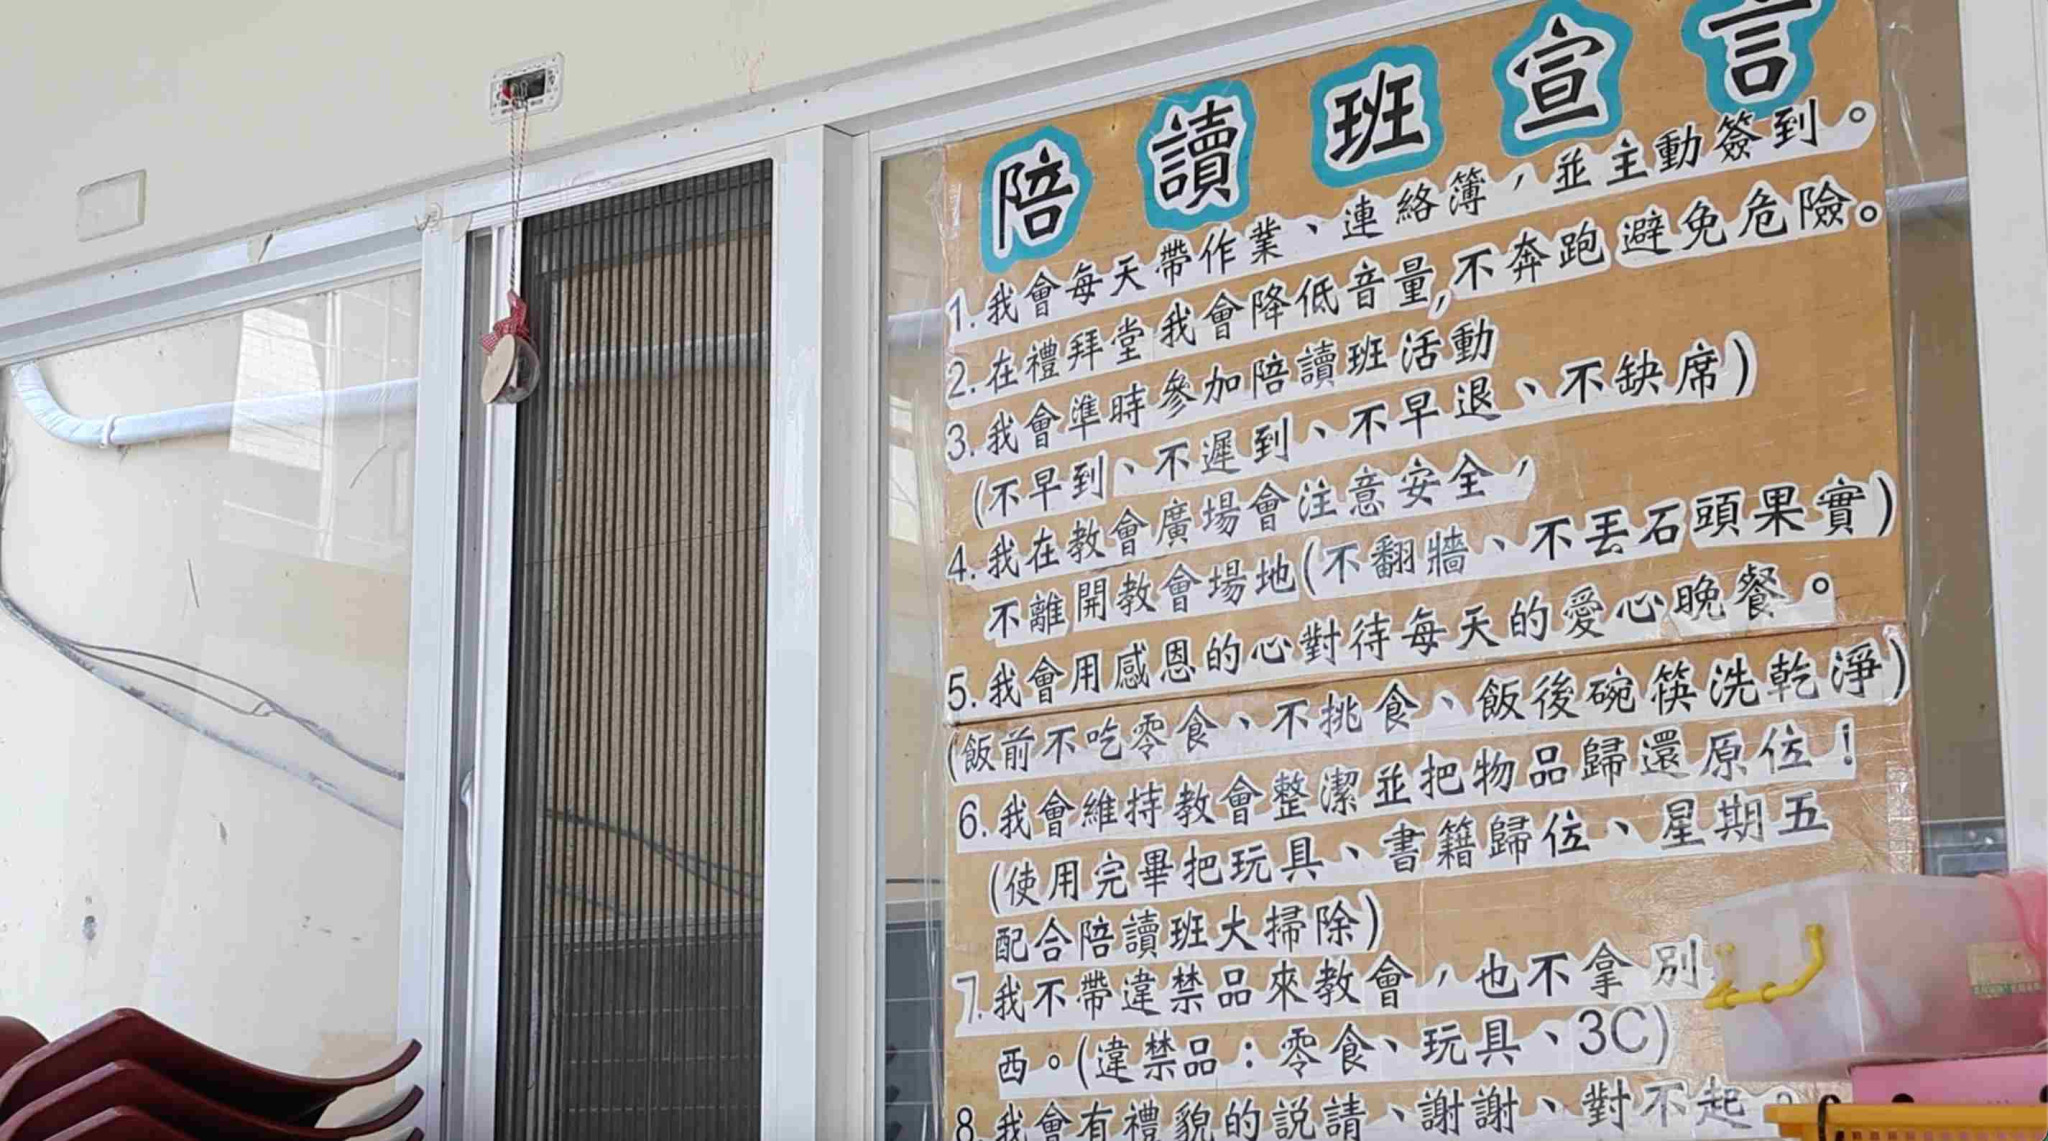 陪讀班宣言
1.我會每天帶作業、連絡簿，並主動簽到。
2.在禮拜堂我會降低音量,不奔跑避免危險。
3.我會準時參加陪讀班活動
(不早到、不遲到、不早退、不缺席)
4.我在教會廣場會注意安全，
不離開教會場地(不翻牆、不丟石頭果實)
5.我會用感恩的心對待每天的愛心晚餐。
(飯前不吃零食、不挑食、飯後碗筷洗乾淨)
6.我會維持教會整潔並把物品歸還原位！
(使用完畢把玩具、書籍歸位、星期五
配合陪讀班大掃除)
7.我不帶違禁品來教會，也不拿別
西。(違禁品：零食、玩具、3C)
8.我會有禮貌的説請、謝謝、對不起。